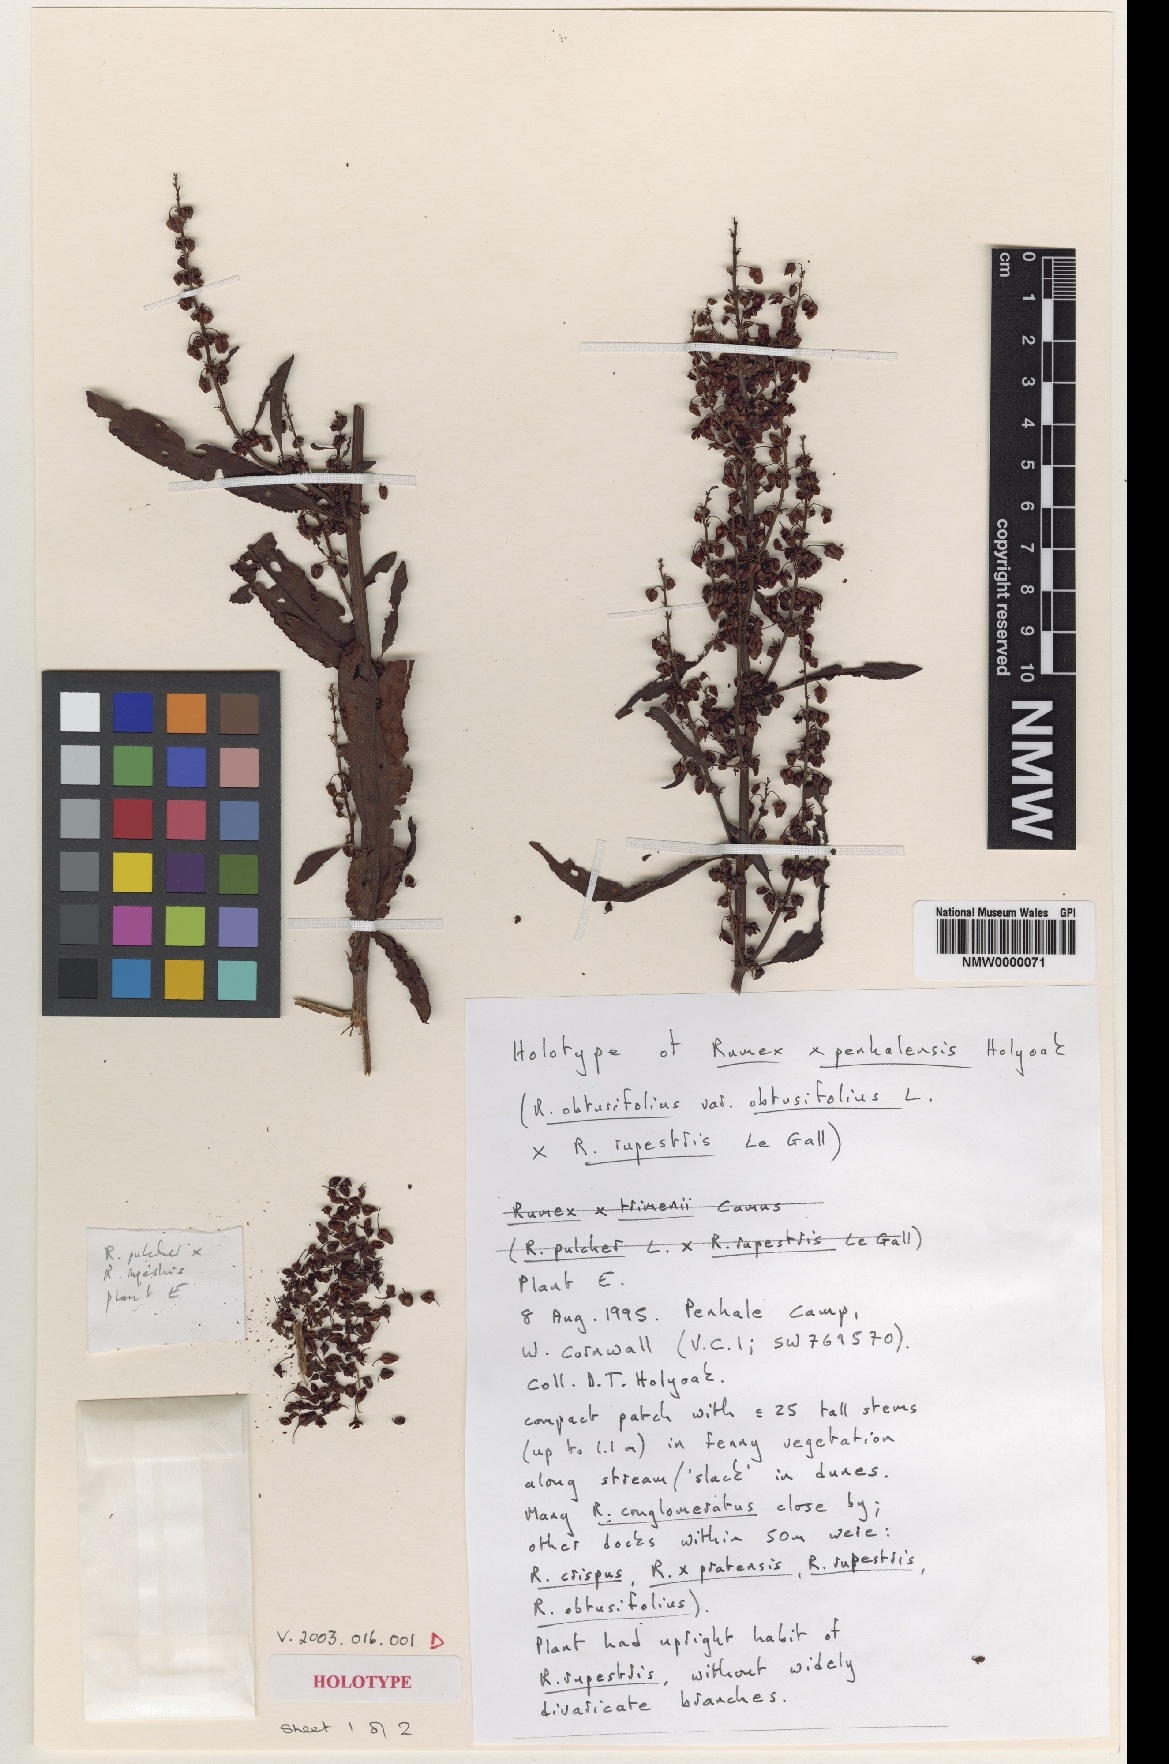 cm 0 1 2 3 4 5 6 7 8 9 10
copyright reserved
NMW
National Museum Wales GPI
NMW0000071
Holotype of Rumex x penhalensis Holyoak
(R. obtusifolius var. obtusifolius L.
x R. rupestris Le Gall)
Rumex x trimenii Camus
(R. pulcher L. x R. rupestris Le Gall)
Plant E.
8 Aug. 1995. Penhale Camp,
W. Cornwall (V.C.1; SW769570).
Coll. D.T. Holyoak.
compact patch with ± 25 tall stems
(up to 1.1 m) in fenny vegetation
along stream/'slack' in dunes.
Many R. conglomeratus close by;
other docks within 50m were:
R. crispus, R. x pratensis, R. rupestris,
R. obtusifolius).
Plant had upright habit of
R. rupestris, without widely
divaricate branches.
R. pulcher x
R. rupestris
plant E
V.2003.016.001 D
HOLOTYPE
Sheet 1 of 2